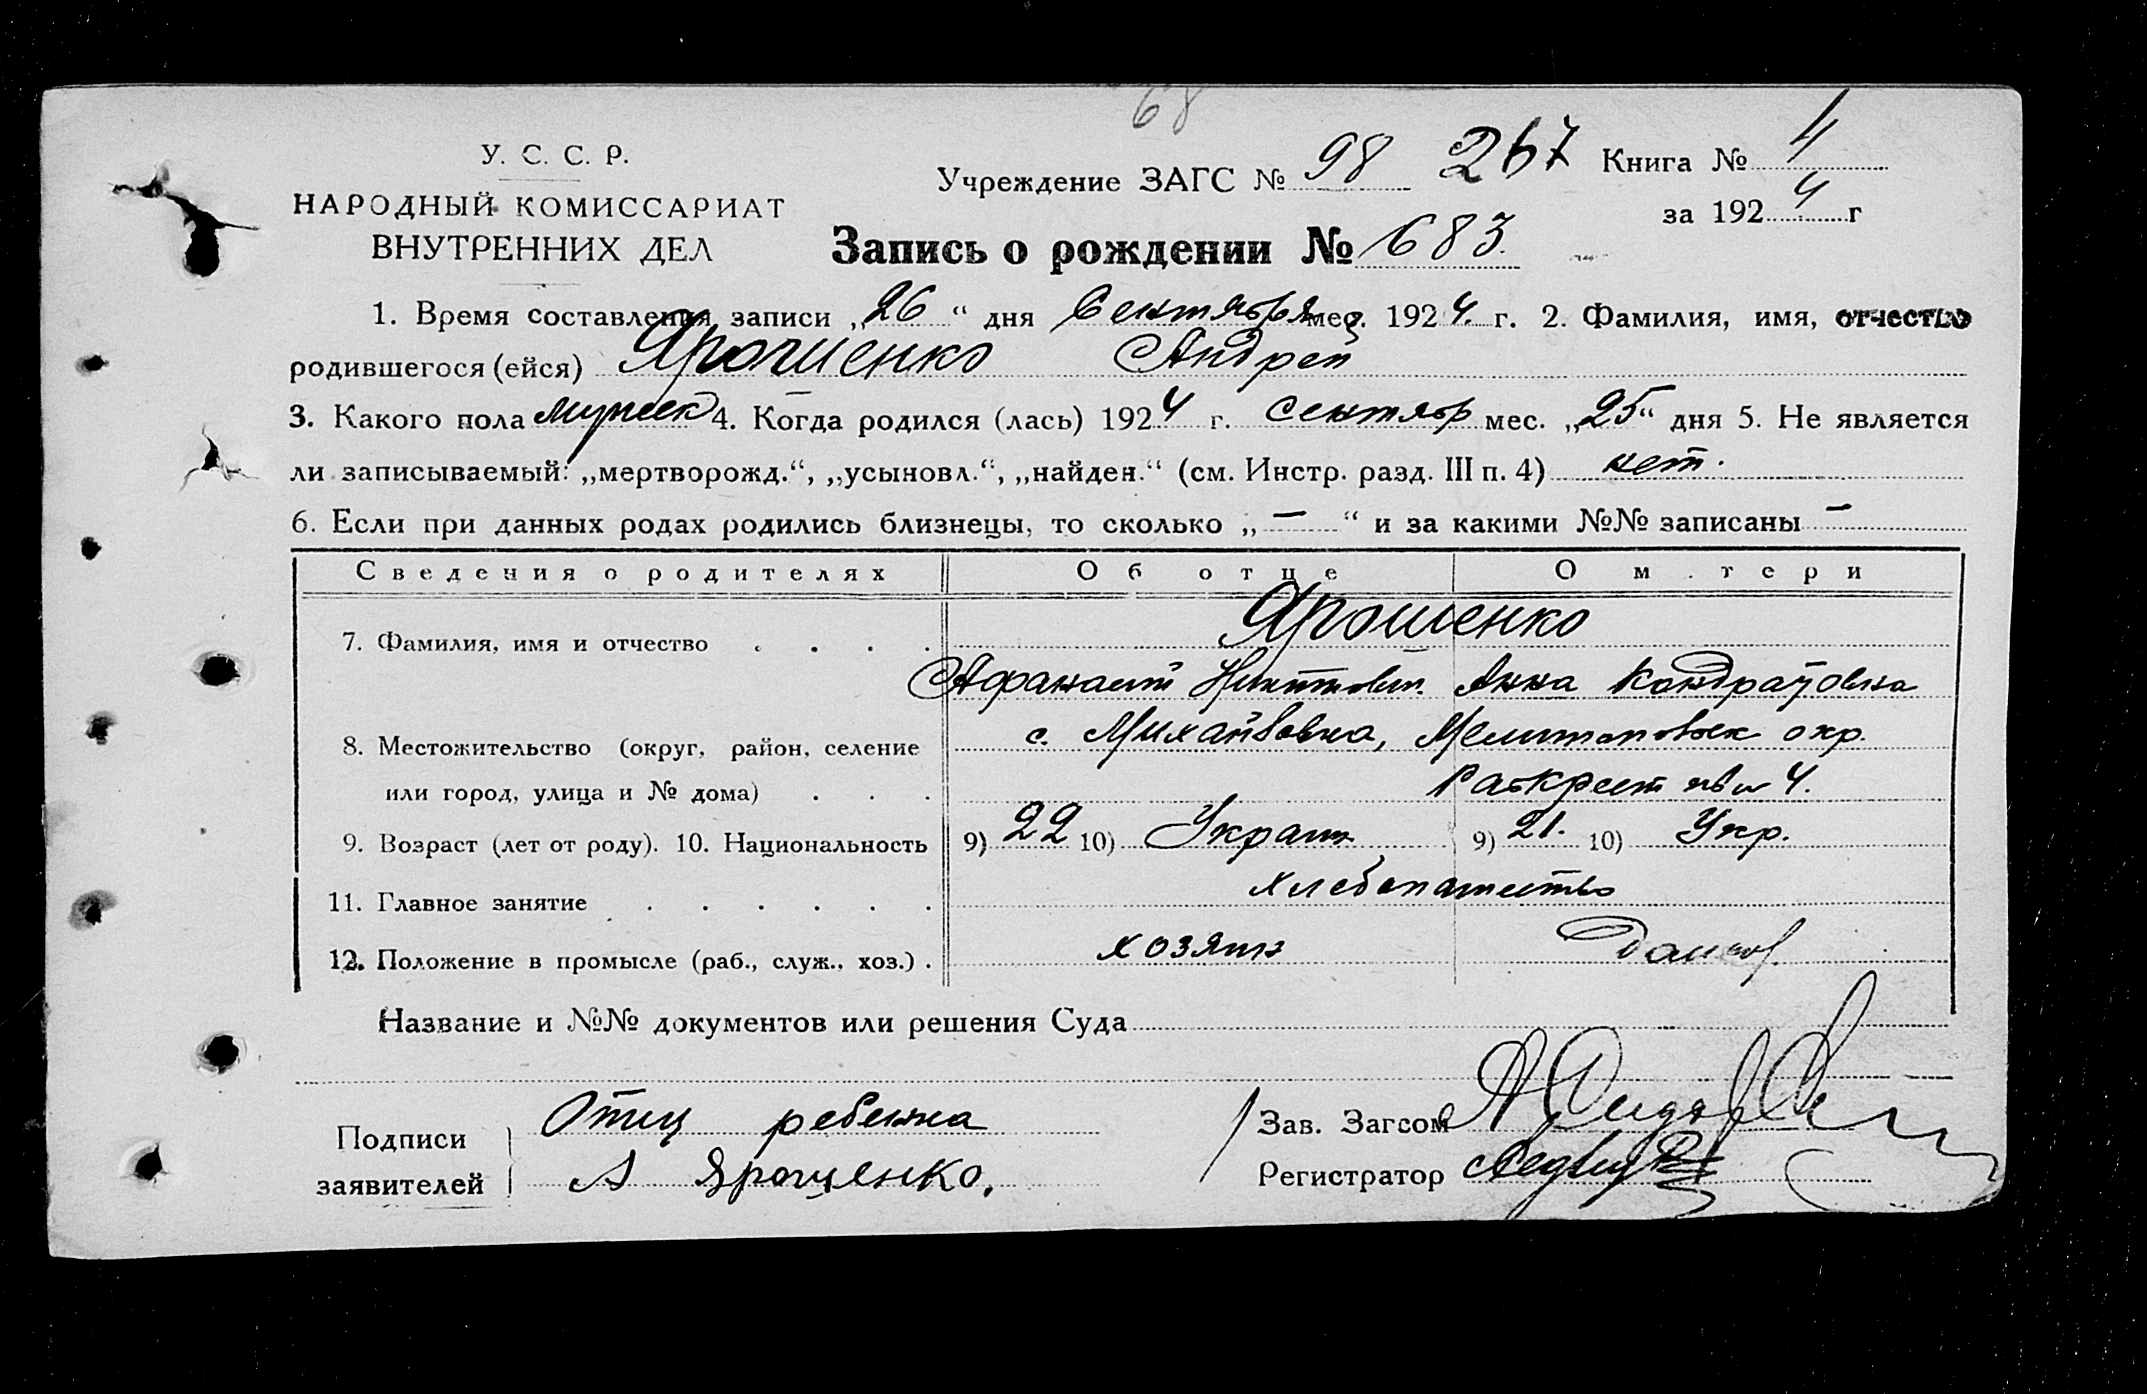 68
У. С. С. Р.
НАРОДНЫЙ КОМИССАРИАТ
ВНУТРЕННИХ ДЕЛ
Учреждение ЗАГС № 98 267 Книга № 4
за 1924 г
Запись о рождении № 683.
1. Время составления записи „26“ дня Сентября мес. 1924. г. 2. Фамилия, имя, отчество
родившегося (ейся) Ярошенко Андрей
3. Какого пола мужск 4. Когда родился (лась) 1924 г. сентябр мес. „25“ дня 5. Не является
ли записываемый: „мертворожд.“, „усыновл.“, „найден.“ (см. Инстр. разд. III п. 4) нет.
6. Если при данных родах родились близнецы, то сколько „—“ и за какими №№ записаны —
Сведения о родителях Об отце О м.тери
7. Фамилия, имя и отчество . . . . Ярошенко
Афанасий Никитович. Анна Кондратовна
8. Местожительство (округ, район, селение с. Михайловка, Мелитопольск окр.
или город, улица и № дома) . . . 4.
9. Возраст (лет от роду). 10. Национальность 9) 22 10) Украин 9) 21. 10) Укр.
11. Главное занятие . . . . . . хлебопашество
12. Положение в промысле (раб., служ., хоз.) . хозяин
Название и №№ документов или решения Суда
Подписи
заявителей
Отец ребенка
А Ярошенко.
Зав. Загсом
Регистратор